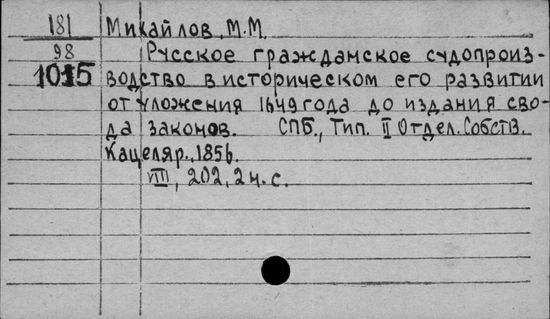 181 Михайлов, М.М.
98 Русское гражданское судопроиз-
1015 водство в историческом его развитии
от уложения 1649 года до издания сво-
да законов. СПБ., Тип. II Отдел. Собств.
Кацеляр., 1856.
VIII, 202, 2 н. с.